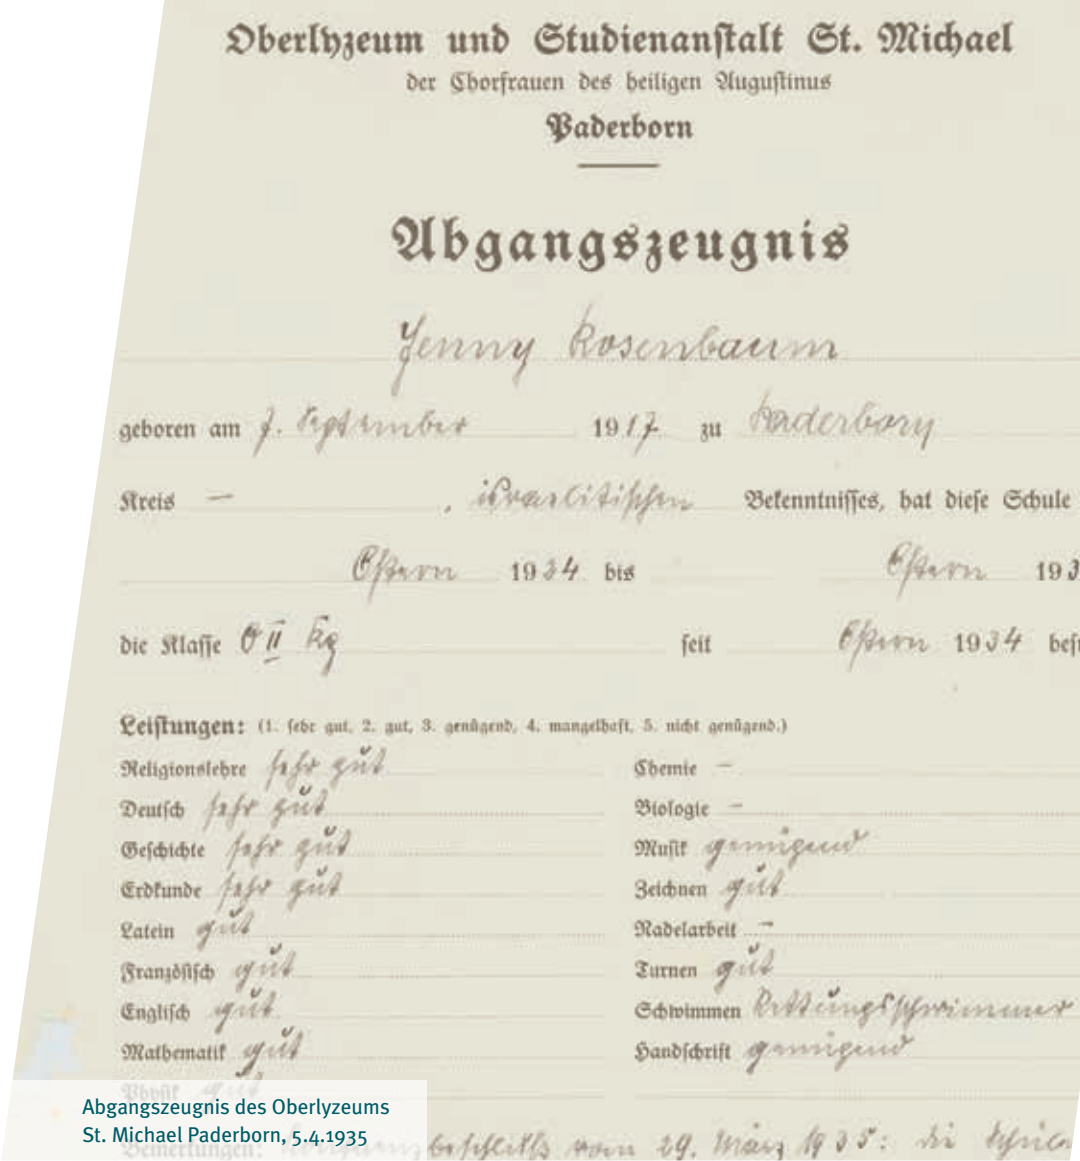 Oberlyzeum und Studienanstalt St. Michael
der Chorfrauen des heiligen Augustinus
Paderborn
Abgangszeugnis
Jenny Rosenbaum
geboren am 7. September 1917 zu Paderborn
Kreis — , israelitischen Bekenntnisses, hat diese Schule
Ostern 1934 bis Ostern 193
die Klasse O II seit Ostern 1934
Leistungen: (1. sehr gut, 2. gut, 3. genügend, 4. mangelhaft, 5. nicht genügend.)
Religionslehre sehr gut
Deutsch sehr gut
Geschichte sehr gut
Erdkunde sehr gut
Latein gut
Französisch gut
Englisch gut
Mathematik gut
Physik gut
Chemie –
Biologie –
Musik genügend
Zeichnen gut
Nadelarbeit –
Turnen gut
Schwimmen Rettungsschwimmer
Handschrift genügend
Bemerkungen: Konferenzbeschluß vom 29. März 1935: die
Abgangszeugnis des Oberlyzeums
St. Michael Paderborn, 5.4.1935